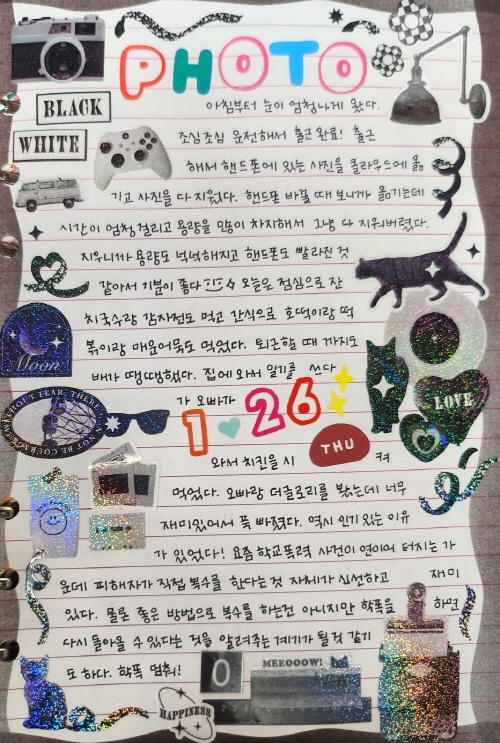 PHOTO
BLACK
WHITE
아침부터 눈이 엄청나게 왔다.
조심조심 운전해서 출근 완료! 출근
해서 핸드폰에 있는 사진을 클라우드에 옮
기고 사진을 다 지웠다. 핸드폰 바꿀 때 보니까 옮기는데
시간이 엄청 걸리고 용량을 많이 차지해서 그냥 다 지워버렸다.
지우니까 용량도 넉넉해지고 핸드폰도 빨라진 것
같아서 기분이 좋다 오늘은 점심으로 잔
치국수랑 감자전도 먹고 간식으로 호떡이랑 떡
볶이랑 매운어묵도 먹었다. 퇴근할 때 까지도
배가 땡땡했다. 집에 와서 일기를 쓰다
가 오빠가
Moon
LOVE
WITHOUT FEAR, THERE
NOT BE COURAGE
1·26
THU
와서 치킨을 시켜
먹었다. 오빠랑 더글로리를 봤는데 너무
재미있어서 푹 빠졌다. 역시 인기 있는 이유
가 있었다! 요즘 학교폭력 사건이 연이어 터지는 가
운데 피해자가 직접 복수를 한다는 것 자체가 신선하고 재미
있다. 물론 좋은 방법으로 복수를 하는건 아니지만 학폭을 하면
다시 돌아올 수 있다는 것을 알려주는 계기가 될 것 같기
도 하다. 학폭 멈춰!
0
MEEOOOW!
HAPPINESS